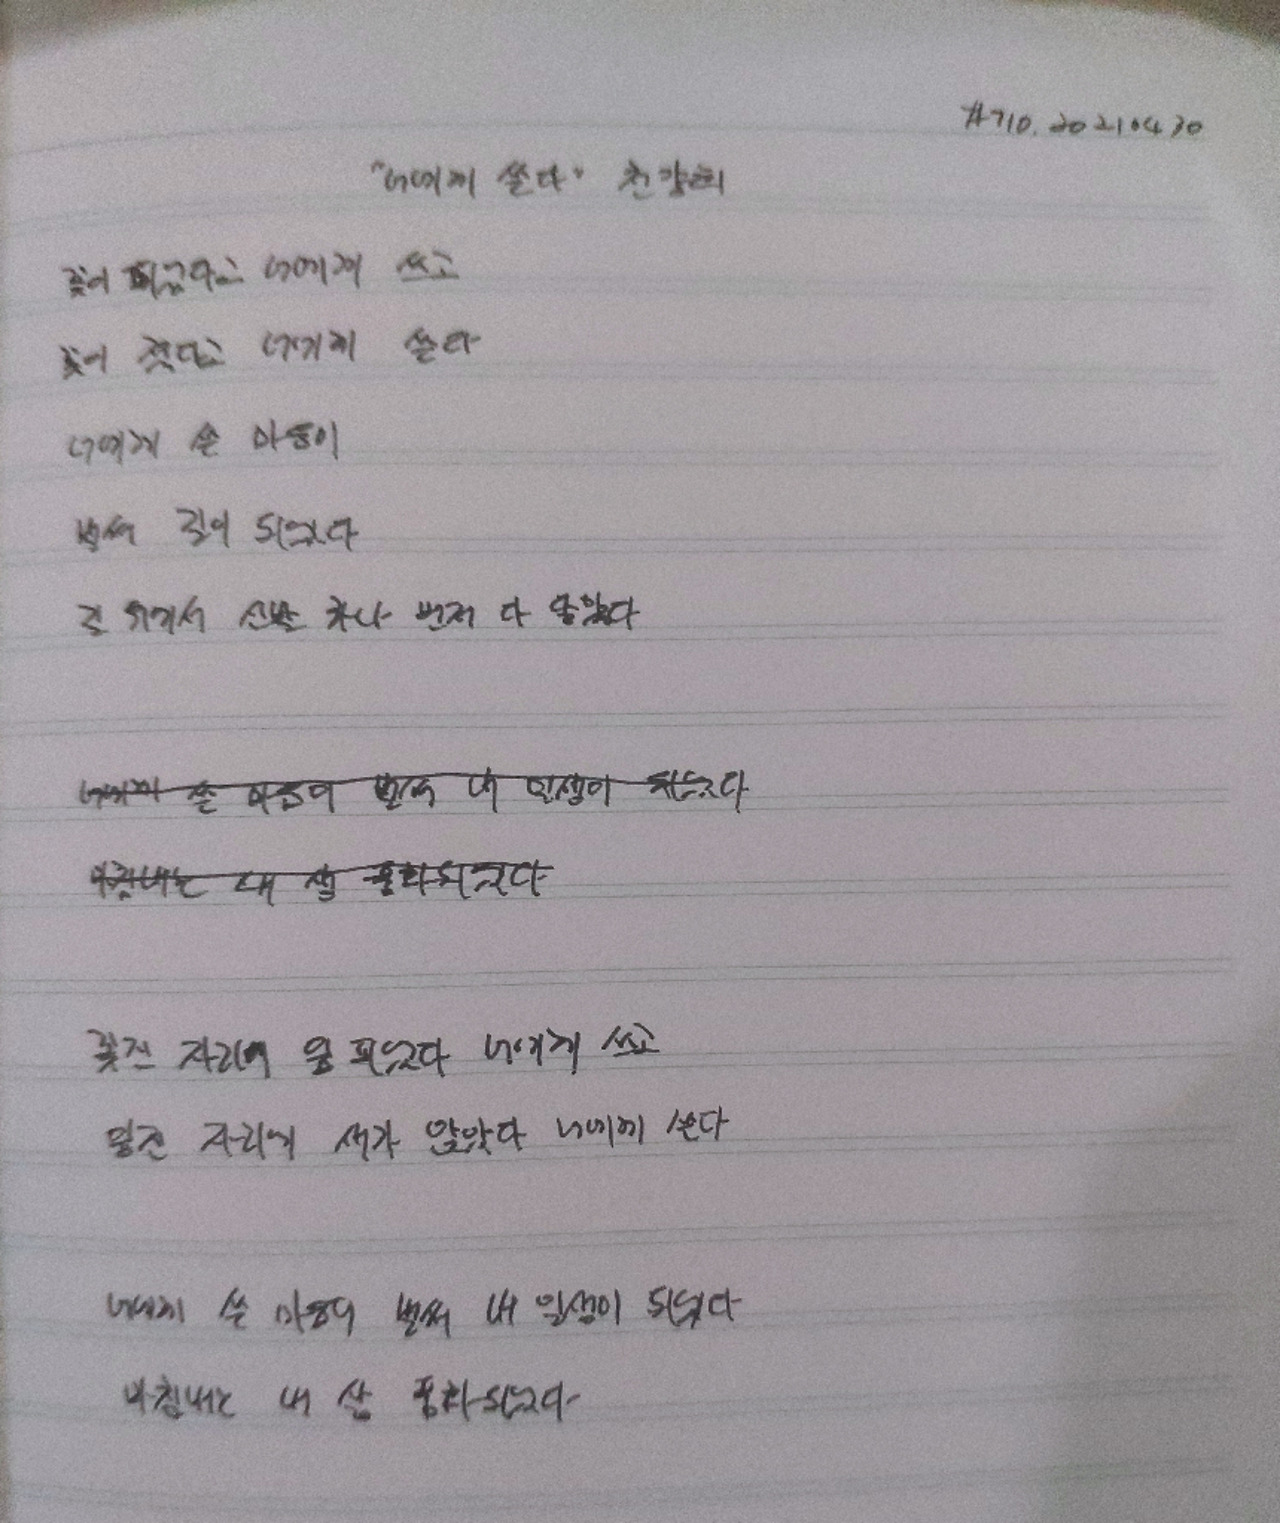 #710. 20210430
"너에게 쓴다" 천양희
꽃이 피었다고 너에게 쓰고
꽃이 졌다고 너에게 쓴다
너에게 쓴 마음이
벌써 길이 되었다
길 위에서 신발 하나 먼저 다 닳았다
너에게 쓴 마음이 벌써 내 인생이 되었다
마침내는 내 생 풍화되었다
꽃진 자리에 잎 피었다 너에게 쓰고
잎진 자리에 새가 앉았다 너에게 쓴다
너에게 쓴 마음이 벌써 내 인생이 되었다
마침내는 내 삶 풍화되었다